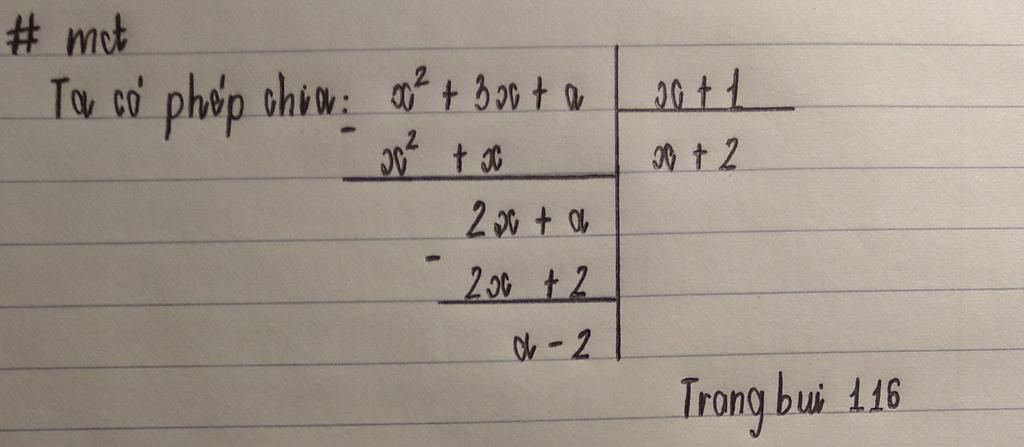 # mct
Ta có phép chia: x² + 3x + a | x + 1
- x² + x | x + 2
2x + a
- 2x + 2
a - 2
Trangbui 116